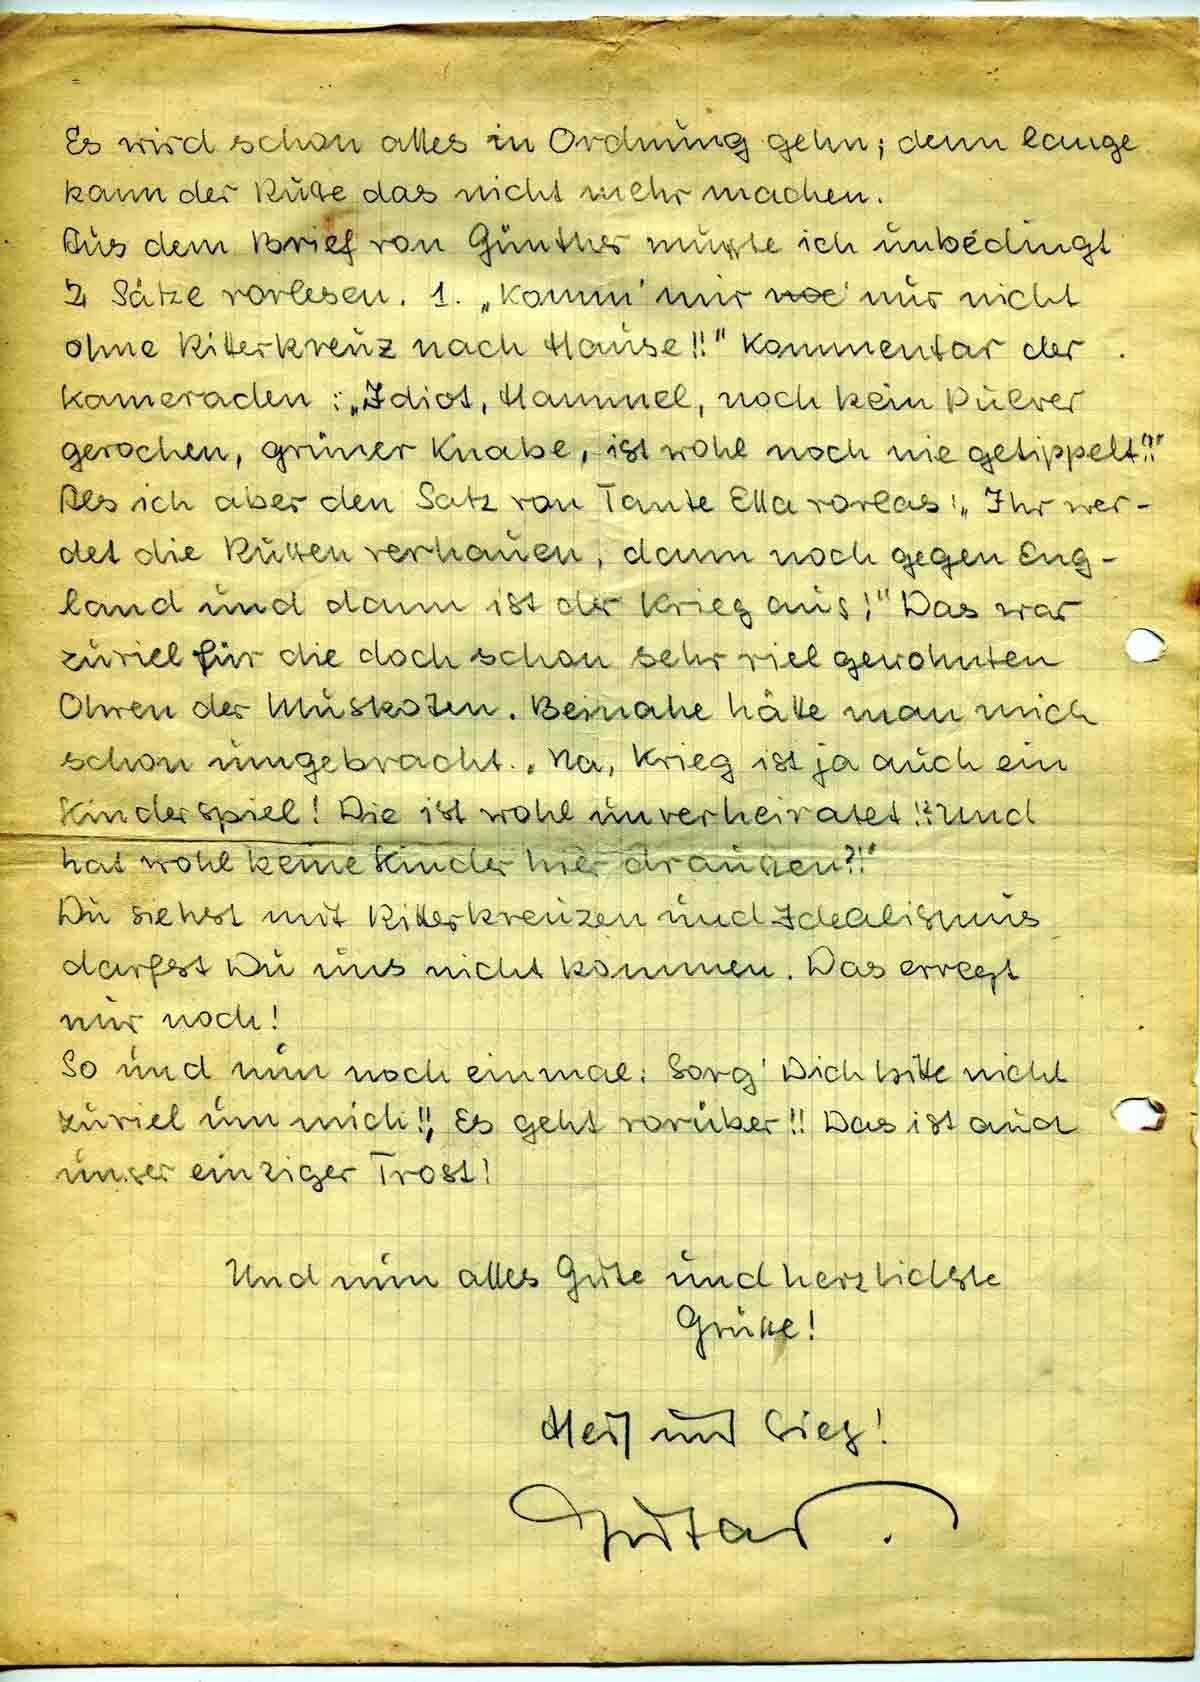 Es wird schon alles in Ordnung gehn; denn lange
kann der Russe das nicht mehr machen.
Aus dem Brief von Günther musste ich unbedingt
2 Sätze vorlesen. 1. „Komm' mir noc' nur nicht
ohne Ritterkreuz nach Hause!!" Kommentar der
Kameraden: „Idiot, Hammel, noch kein Pulver
gerochen, grüner Knabe, ist wohl noch nie getippelt?!"
Als ich aber den Satz von Tante Ella vorlas: „Ihr wer-
det die Russen verhauen, dann noch gegen Eng-
land und dann ist der Krieg aus!" Das war
zuviel für die doch schon sehr viel gewohnten
Ohren der Muskoten. Beinahe hätte man mich
schon umgebracht. „Na, Krieg ist ja auch ein
Kinderspiel! Die ist wohl unverheiratet!? Und
hat wohl keine Kinder hier draussen?!"
Du siehst mit Ritterkreuzen und Idealismus
darfst Du uns nicht kommen. Das erregt
nur noch!
So und nun noch einmal: Sorg' Dich bitte nicht
zuviel um mich!! Es geht vorüber!! Das ist auch
unser einziger Trost!
Und nun alles Gute und herzlichste
Grüsse!
Heil und Sieg!